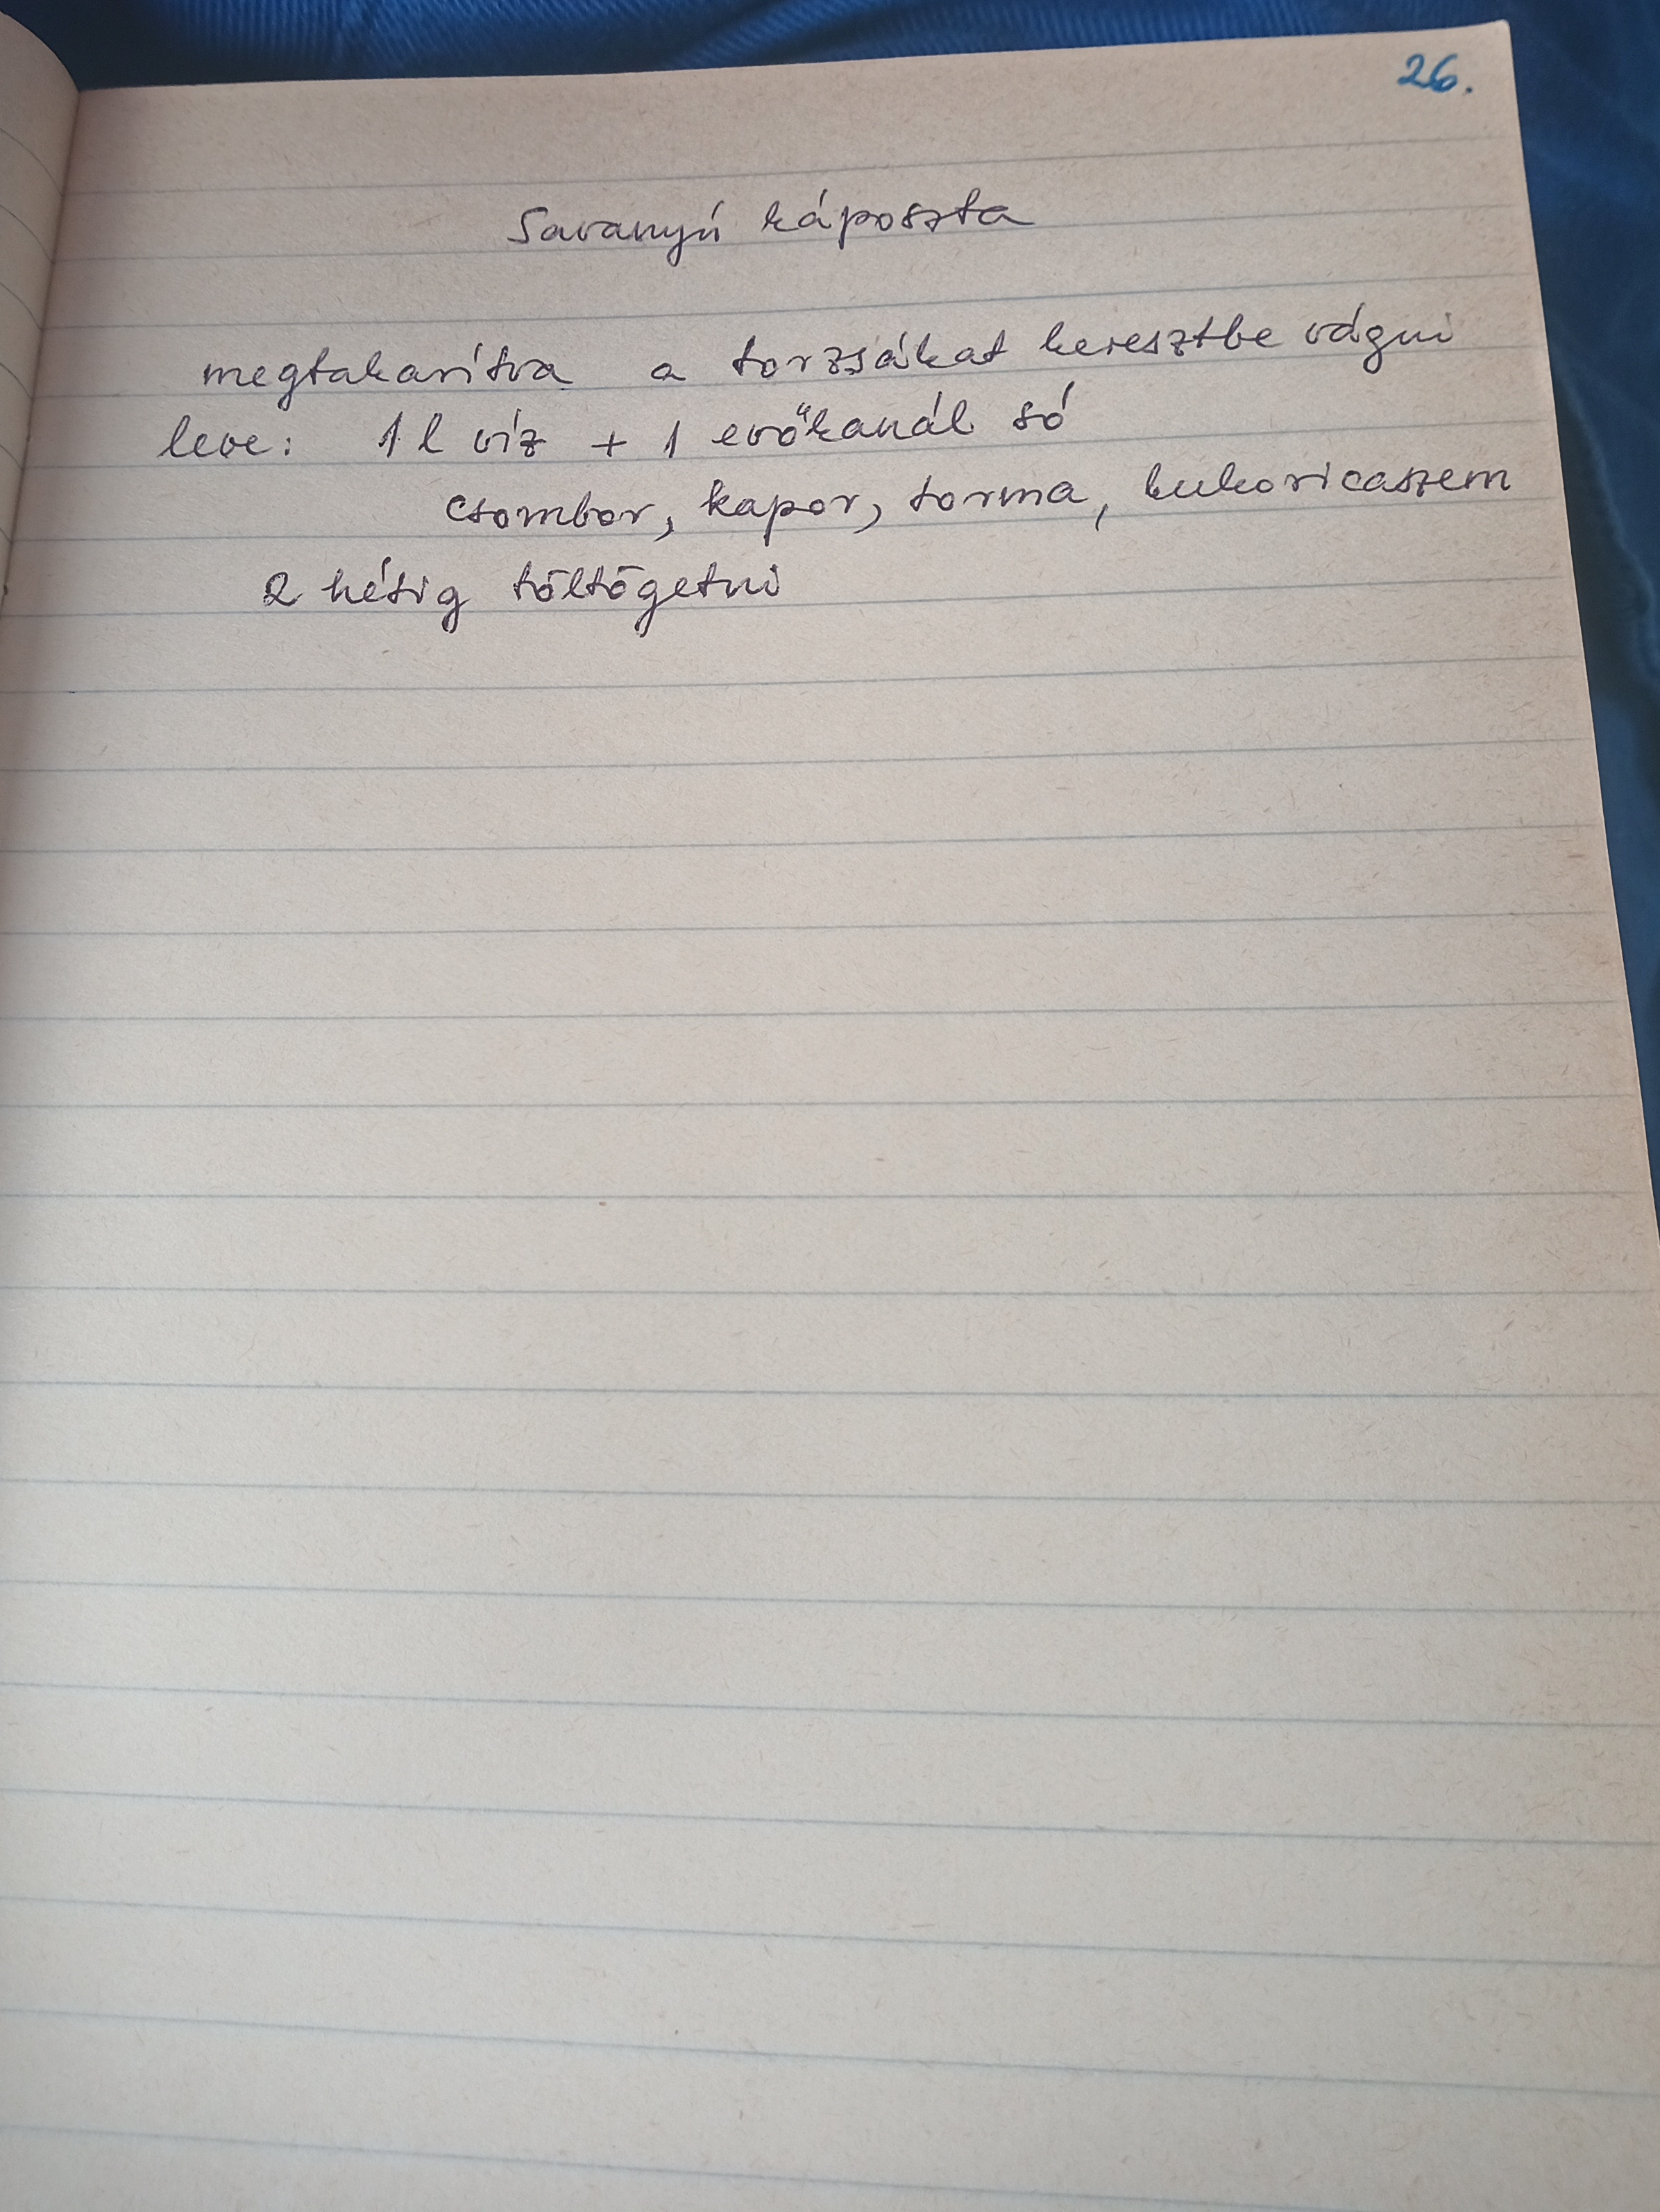 26.
Savanyú káposzta
megtakarítva a torzsákat keresztbe vágni
leve: 1 l víz + 1 evőkanál só
csombor, kapor, torma, kukoricaszem
2 hétig töltögetni